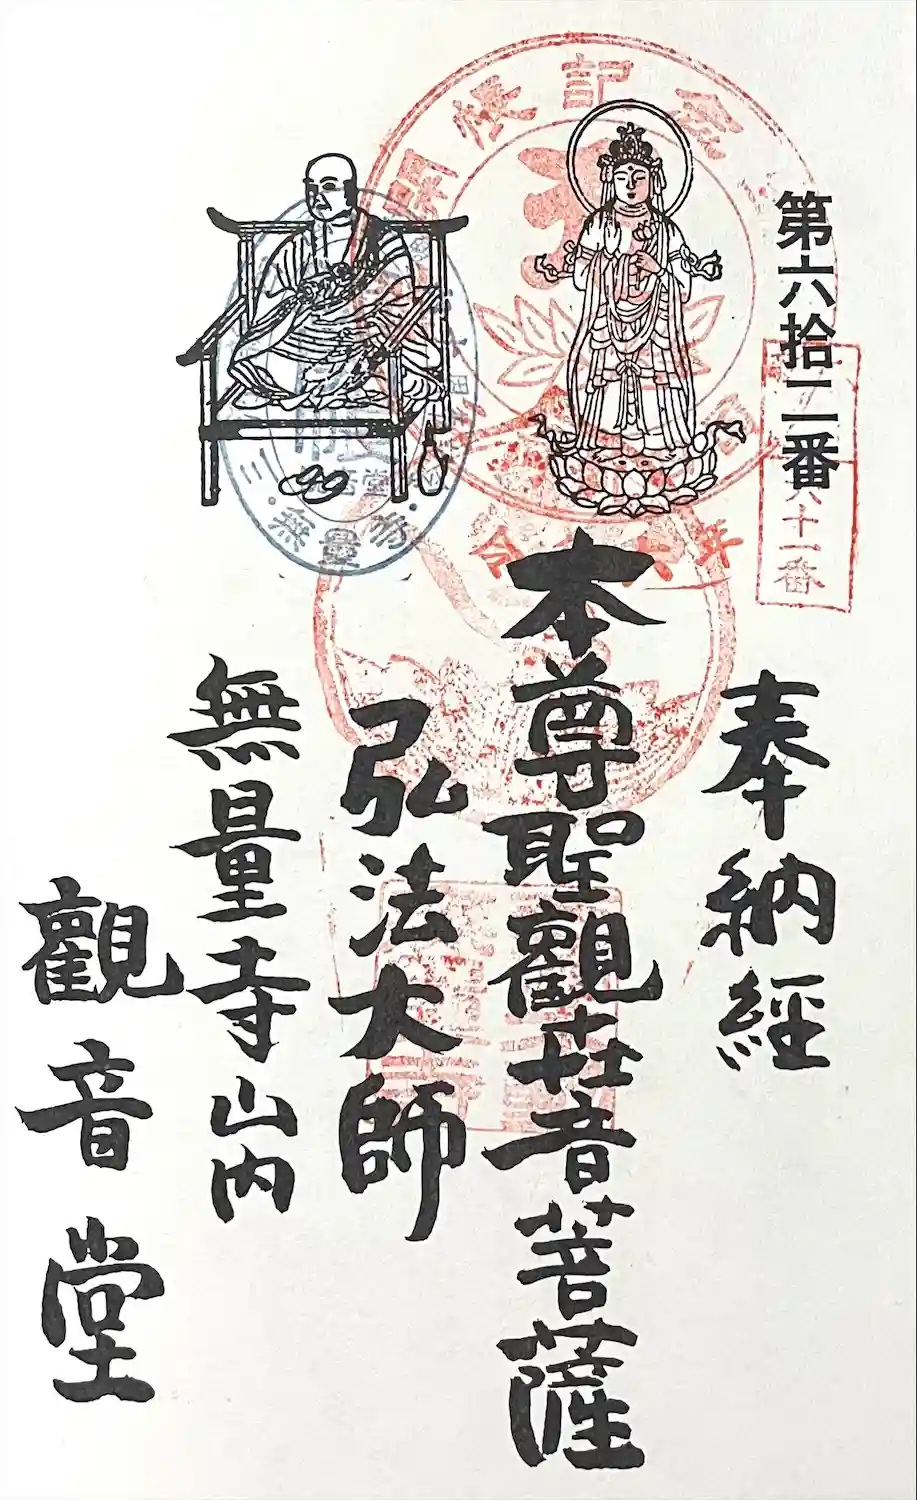 第六拾二番
六十一番
奉納経
本尊聖觀世音菩薩
弘法大師
無量寺山内
觀音堂
開帳記念
無量寺